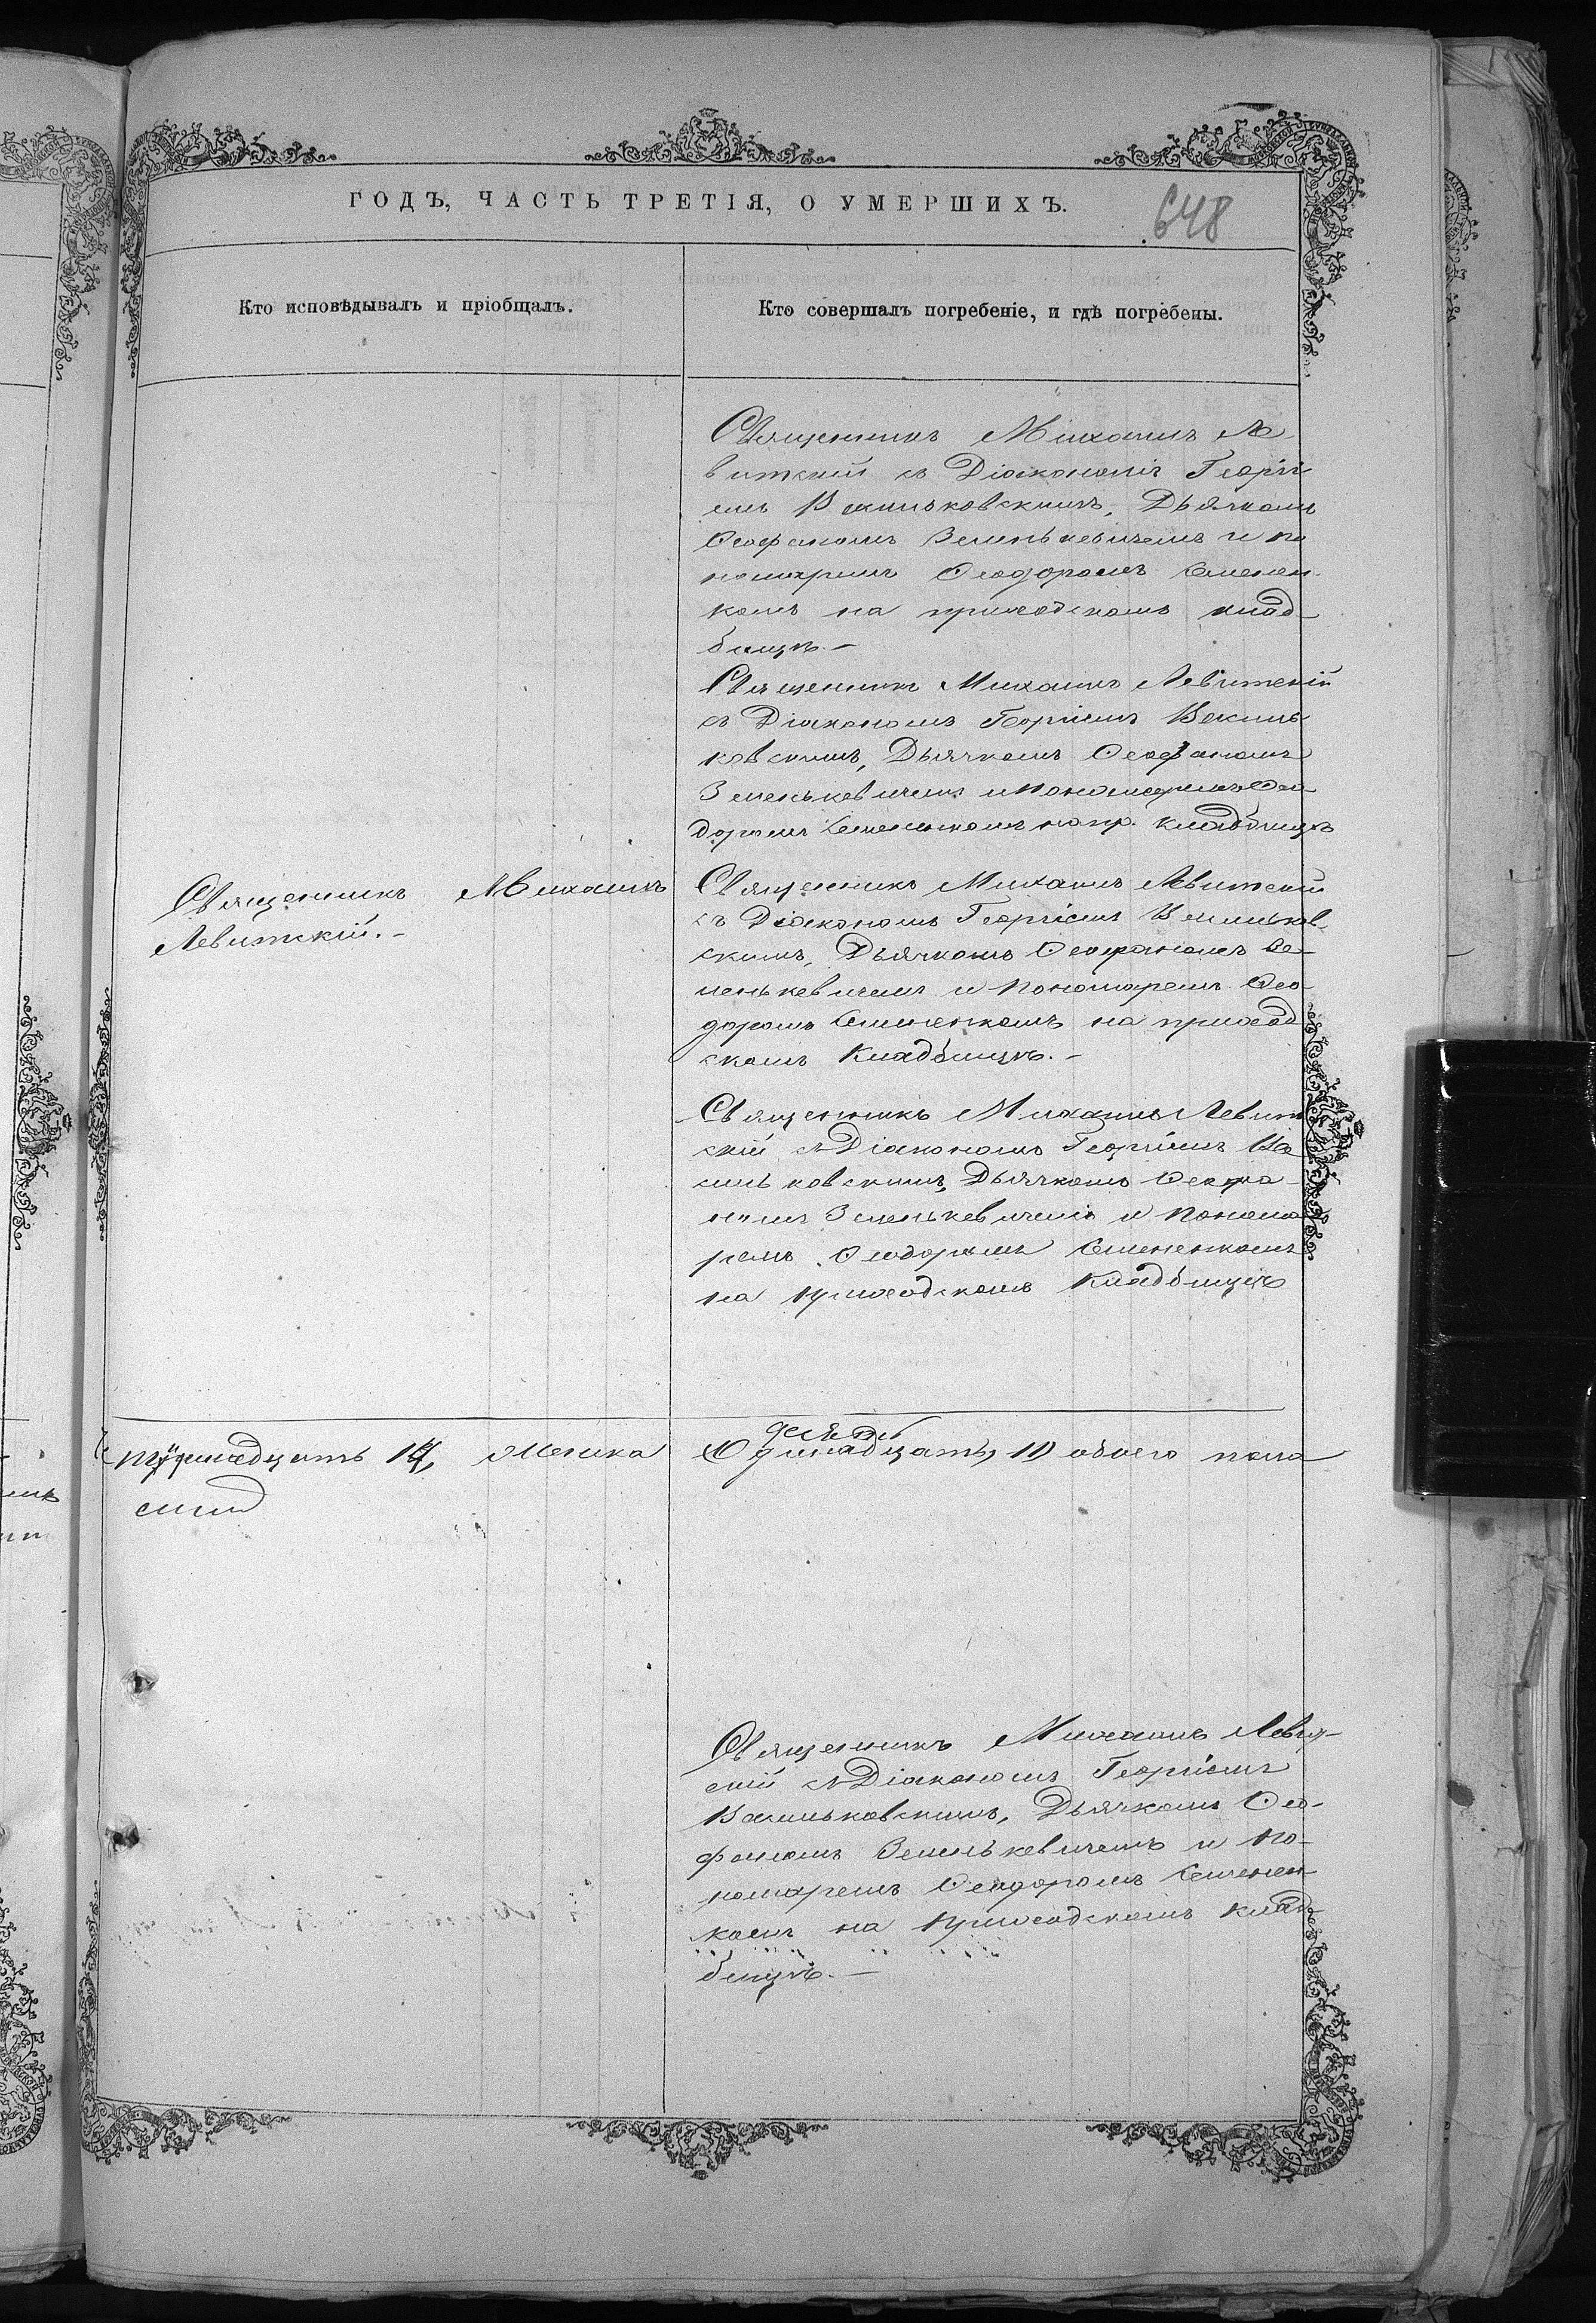 ГОДЪ, ЧАСТЬ ТРЕТІЯ, О УМЕРШИХЪ.
648
Кто исповѣдывалъ и пріобщалъ.
Кто совершалъ погребеніе, и гдѣ погребены.
Священникъ Михаилъ Ле-
витскій съ Діакономъ Георгі-
емъ Васильковскимъ, Дьячкомъ
Ѳеофаномъ Зеленькевичемъ и по
номаремъ Ѳеодоромъ Семенен-
комъ на приходскомъ клад-
бищѣ.-
Священникъ Михаилъ Левитскій
съ Діакономъ Георгіемъ Василь-
ковскимъ, Дьячкомъ Ѳеофаномъ
Зеленькевичемъ и Пономаремъ Ѳео-
доромъ Семененкомъ на пр. кладбищѣ
Священникъ Михаилъ
Левитскій.-
Священникъ Михаилъ Левитскій
съ Діакономъ Георгіемъ Васильков-
скимъ, Дьячкомъ Ѳеофаномъ Зе-
ленькевичемъ и Пономаремъ Ѳео-
доромъ Семененкомъ на приход
скомъ Кладбищѣ.-
Священникъ Михаилъ Левит
скій съ Діакономъ Георгіемъ Ва
сильковскимъ, Дьячкомъ Ѳеофа-
номъ Зеленькевичемъ и Понома
ремъ Ѳеодоромъ Семененкомъ
на приходскомъ Кладбищѣ
14, женска
десять
Одинадцать, 10 обоего пола
Священникъ Михаилъ Левит-
скій съ Діакономъ Георгіемъ
Васильковскимъ, Дьячкомъ Ѳео-
фаномъ Зеленькевичемъ и По-
номаремъ Ѳеодоромъ Семенен-
комъ на приходскомъ клад-
бищѣ.-